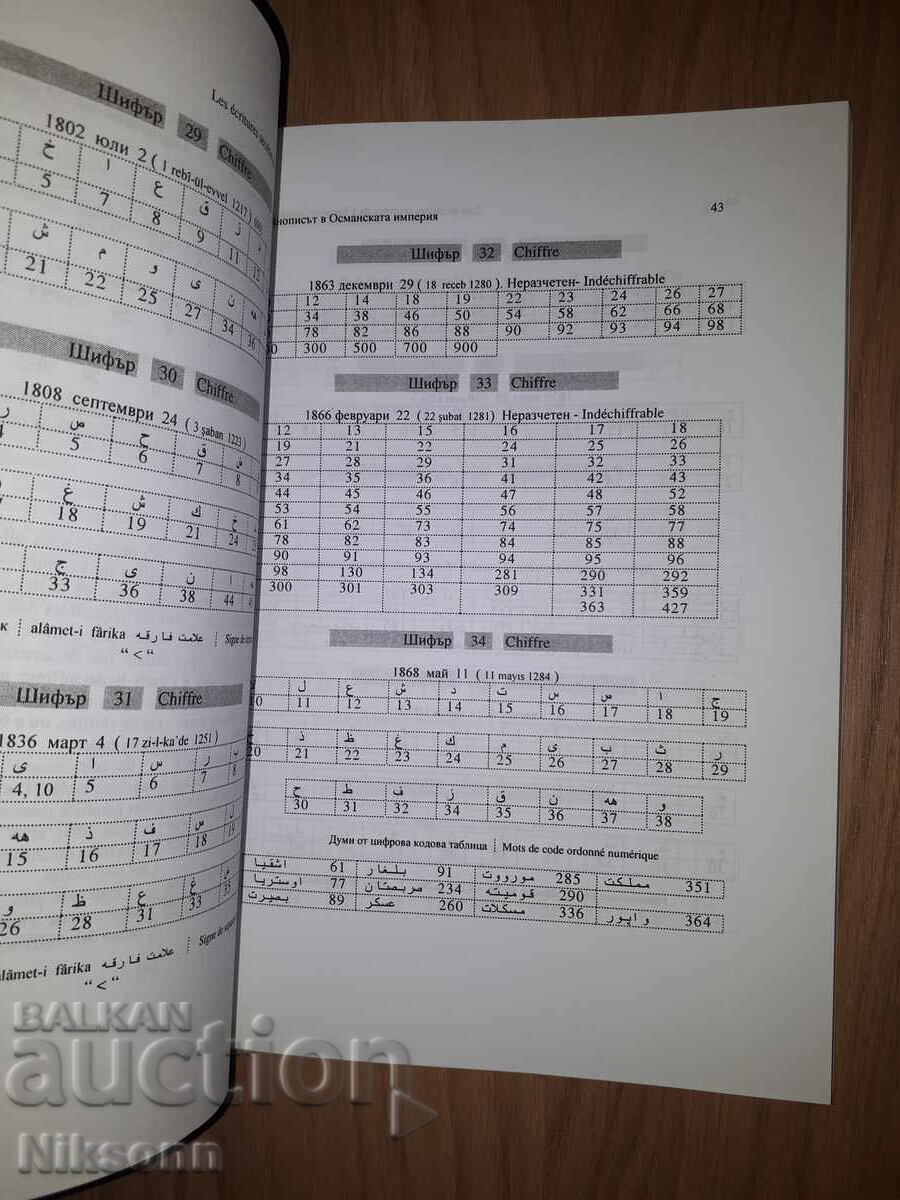 Les écritures
Шифър 29 Chiffre
1802 юли 2 ( 1 rebî-ül-evvel 1217 )
خ ا ع ق ز
5 7 8 9 11 12
ش م و ى ن هه
21 22 25 27 34 36
Шифър 30 Chiffre
1808 септември 24 ( 3 şaban 1223 )
ر ص ح ق
4 5 6 7 8
غ ش ك خ
18 19 21 24
ج ى ن ا
33 36 38 44
alâmet-i fârika علامت فارقه Signe de
“ < “
Шифър 31 Chiffre
1836 март 4 ( 17 zi-l-ka'de 1251 )
ى ا س ر ب
4, 10 5 6 7 8
هه ذ ف س ل
15 16 17 18 19
و ظ ع غ
26 28 31 33 35
alâmet-i fârika علامت فارقه Signe de
“ < “
нописът в Османската империя 43
Шифър 32 Chiffre
1863 декември 29 ( 18 receb 1280 ). Неразчетен- Indéchiffrable
12 14 18 19 22 23 24 26 27
34 38 46 50 54 58 62 66 68
78 82 86 88 90 92 93 94 98
300 500 700 900
Шифър 33 Chiffre
1866 февруари 22 ( 22 şubat 1281) Неразчетен - Indéchiffrable
12 13 15 16 17 18
19 21 22 24 25 26
27 28 29 31 32 33
34 35 36 41 42 43
44 45 46 47 48 52
53 54 55 56 57 58
61 62 73 74 75 77
78 82 83 84 85 88
90 91 93 94 95 96
98 130 134 281 290 292
300 301 303 309 331 359
363 427
Шифър 34 Chiffre
1868 май 11 ( 11 mayıs 1284 )
ل ع ش د ت س ص ا ج
10 11 12 13 14 15 16 17 18 19
ذ ظ غ ك م ى ب ث ر
20 21 22 23 24 25 26 27 28 29
ح ط ف ز ق ن هه و
30 31 32 34 35 36 37 38
Думи от цифрова кодова таблица Mots de code ordonné numérique
اشقيا 61 بلغار 91 موروت 285 مملكت 351
اوستريا 77 صربستان 234 قوميته 290
بصيرت 89 عسكر 260 مسكلات 336 واپور 364
BALKAN
auction
Niksonn